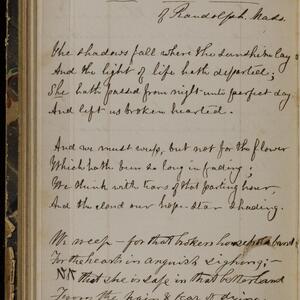 of Randolph. Mass.
The shadows fall where the sunshine lay
And the light of life hath departed;
She hath passed from night unto perfect day
And left us broken hearted.
And we must weep, but not for the flower
Which hath been so long in fading;
We think with tears of that parting hour,
And the cloud our hope-star shading.
We weep – for that broken household band
For the hearts in anguish sighing;–
that she is safe in that better land
From the pain &